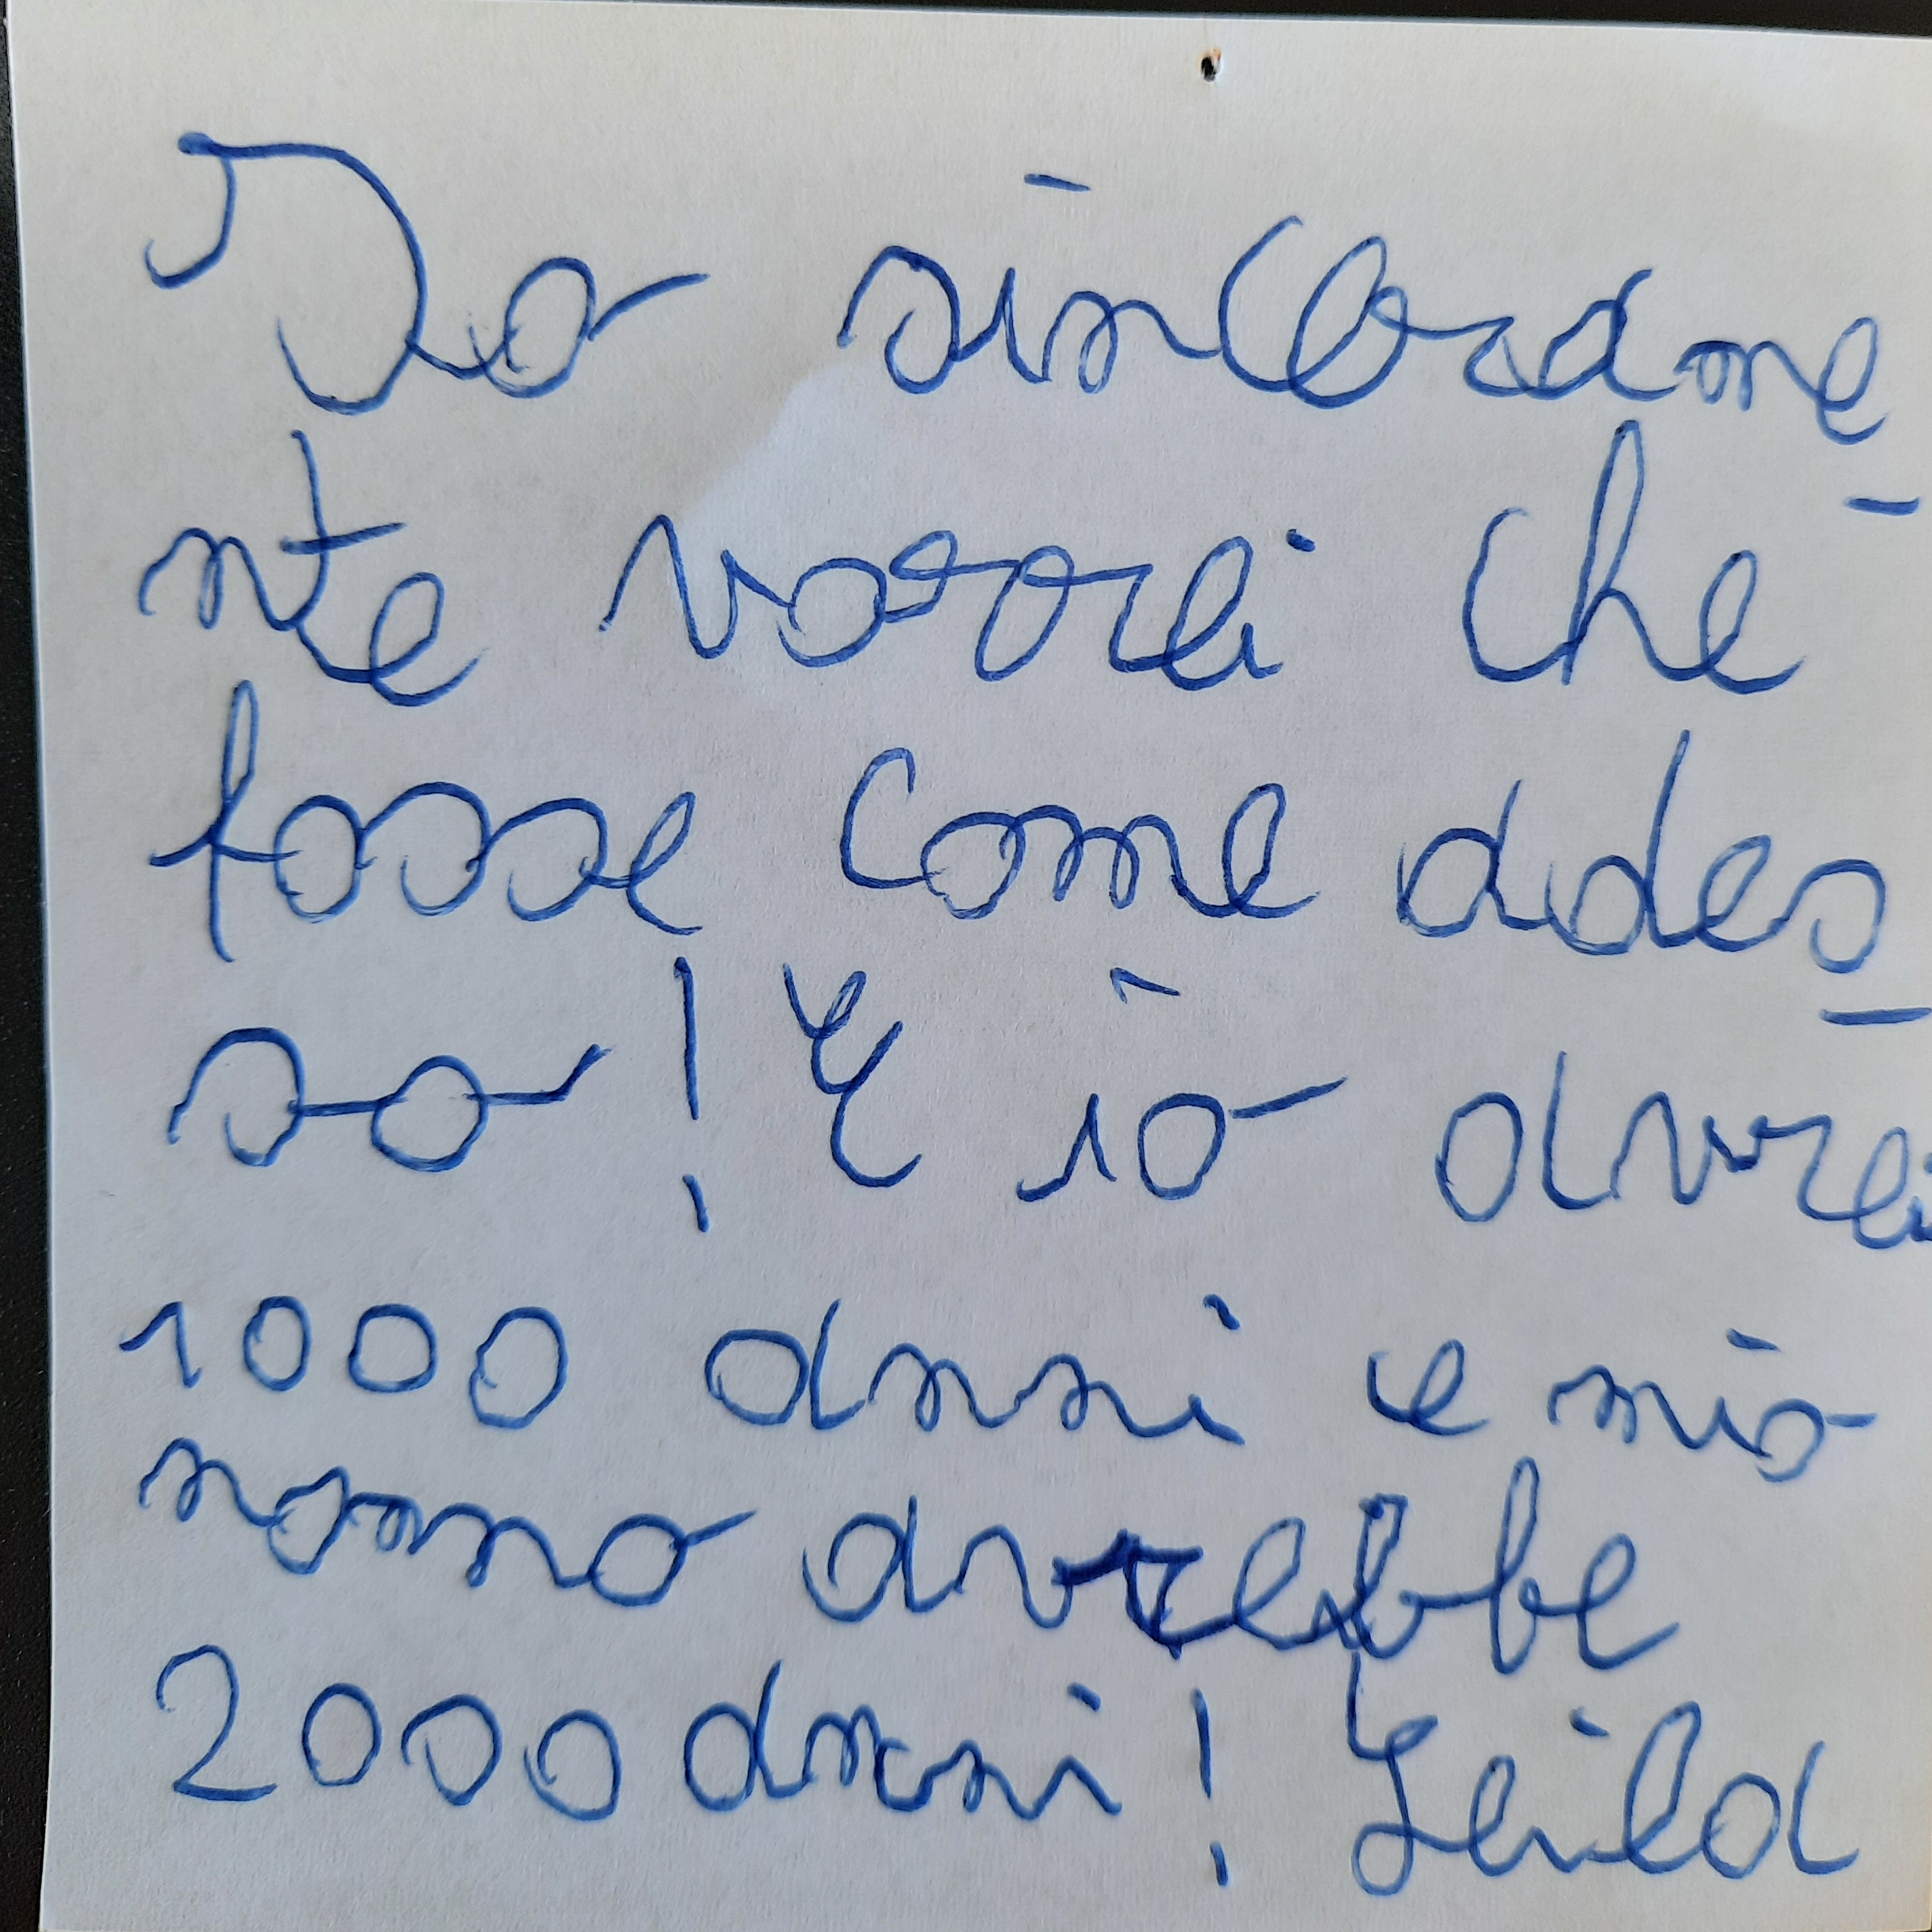 Io sincerame
nte vorrei che
fosse come ades-
so! E io avrei
1000 anni e mio
nonno avrebbe
2000 anni! Leila